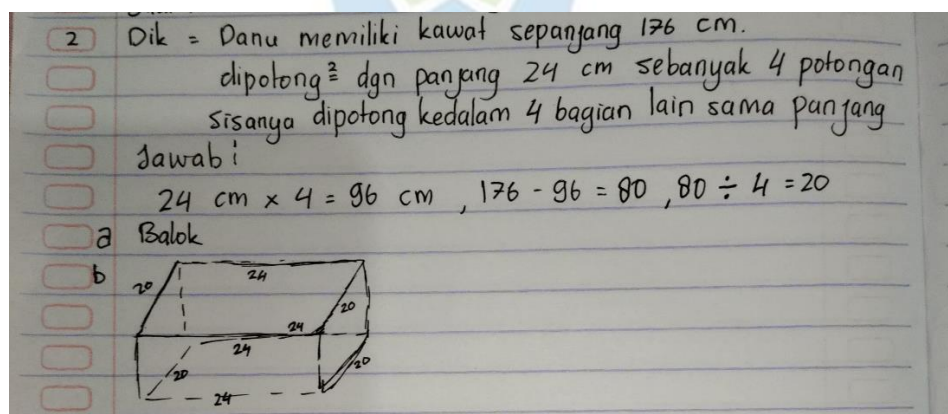 2 Dik = Danu memiliki kawat sepanjang 176 cm.
dipotong² dgn panjang 24 cm sebanyak 4 potongan
sisanya dipotong kedalam 4 bagian lain sama panjang
Jawab :
24 cm × 4 = 96 cm , 176 - 96 = 80 , 80 ÷ 4 = 20
a Balok
b
20 24
20
24
24
20 20
24